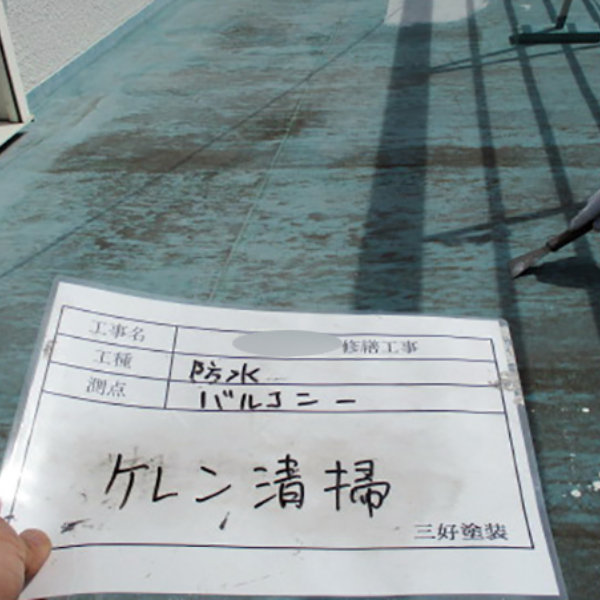 工事名 修繕工事
工種 防水
測点 バルコニー
ケレン清掃
三好塗装